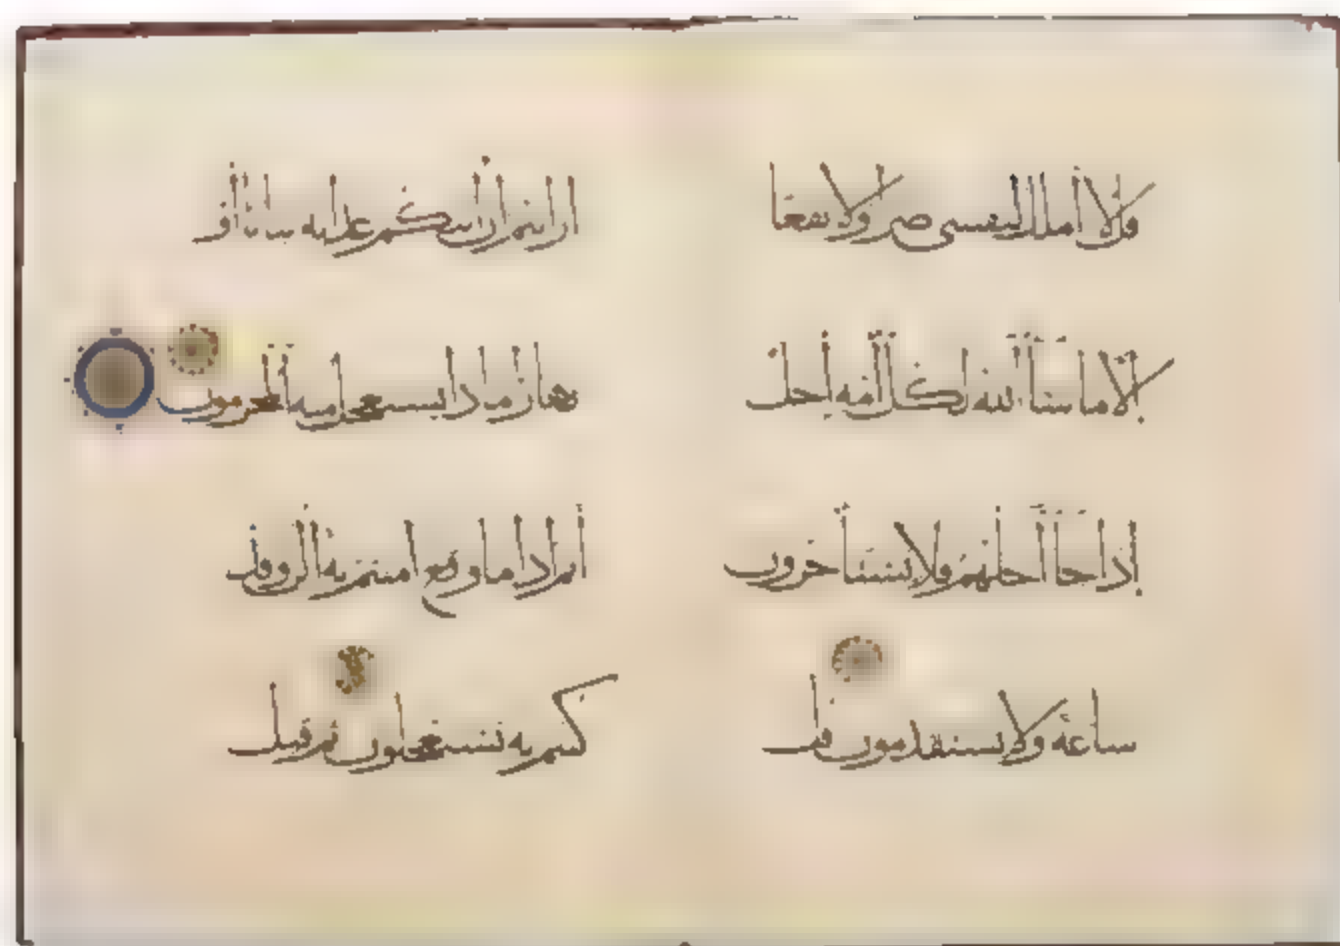 قل لا أملك لنفسي ضرا ولا نفعا
إلا ما شاء الله لكل أمة أجل
إذا جاء أجلهم فلا يستأخرون
ساعة ولا يستقدمون قل
أرايتم إن أتيكم عذابه بياتا أو
نهارا ماذا يستعجل منه المجرمون
أثم إذا ما وقع امنتم به الن وقد
كنتم به تستعجلون ثم قيل